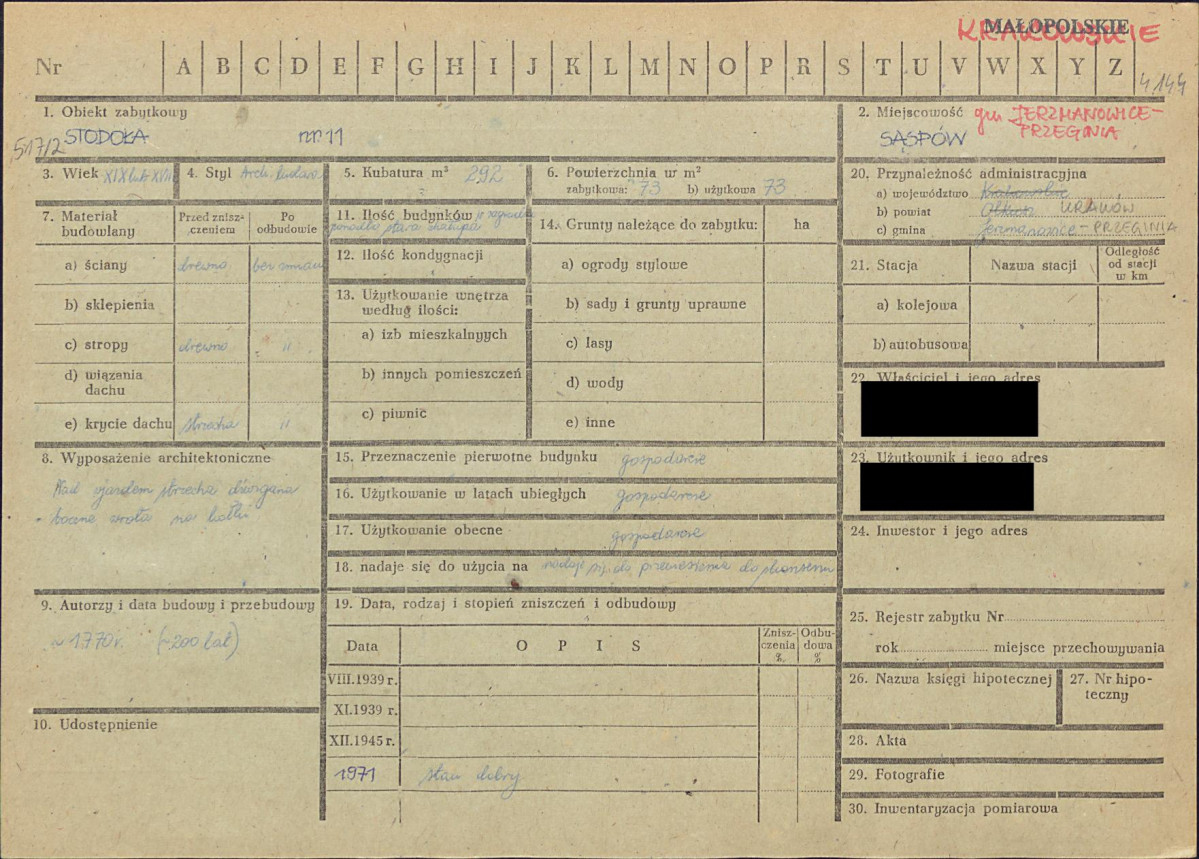 MAŁOPOLSKIE
KRAKOWSKIE
Nr A B C D E F G H I J K L M N O P R S T U V W X Y Z
4144
1. Obiekt zabytkowy
STODOŁA nr 11
517/2
2. Miejscowość gm JERZMANOWICE-
PRZEGINIA
SĄSPÓW
3. Wiek XIX lub XVIII
4. Styl Arch. ludowe
5. Kubatura m³ 292
6. Powierzchnia w m²
zabytkowa: 73 b) użytkowa 73
20. Przynależność administracyjna
a) województwo Krakowskie
b) powiat Olkusz KRAKÓW
c) gmina Jerzmanowice-PRZEGINIA
7. Materiał budowlany
Przed znisz-
czeniem
Po
odbudowie
a) ściany drewno bez zmian
b) sklepienia
c) stropy drewno "
d) wiązania
dachu
e) krycie dachu strzecha "
11. Ilość budynków w zagrodzie
ponadto stara chałupa
12. Ilość kondygnacji
13. Użytkowanie wnętrza
według ilości:
a) izb mieszkalnych
b) innych pomieszczeń
c) piwnic
14. Grunty należące do zabytku: ha
a) ogrody stylowe
b) sady i grunty uprawne
c) lasy
d) wody
e) inne
21. Stacja Nazwa stacji
Odległość
od stacji
w km
a) kolejowa
b) autobusowa
22. Właściciel i jego adres
8. Wyposażenie architektoniczne
Nad zjazdem strzecha dźwigana
- boczne wrota na
15. Przeznaczenie pierwotne budynku gospodarcze
16. Użytkowanie w latach ubiegłych gospodarcze
17. Użytkowanie obecne gospodarcze
18. nadaje się do użycia na nadaje się do przeniesienia do skansenu
23. Użytkownik i jego adres
24. Inwestor i jego adres
9. Autorzy i data budowy i przebudowy
~ 1770 r. (~200 lat)
10. Udostępnienie
19. Data, rodzaj i stopień zniszczeń i odbudowy
Data O P I S
Znisz-
czenia
%
Odbu-
dowa
%
VIII.1939 r.
XI.1939 r.
XII.1945 r.
1971 stan dobry
25. Rejestr zabytku Nr
rok miejsce przechowywania
26. Nazwa księgi hipotecznej
27. Nr hipo-
teczny
28. Akta
29. Fotografie
30. Inwentaryzacja pomiarowa